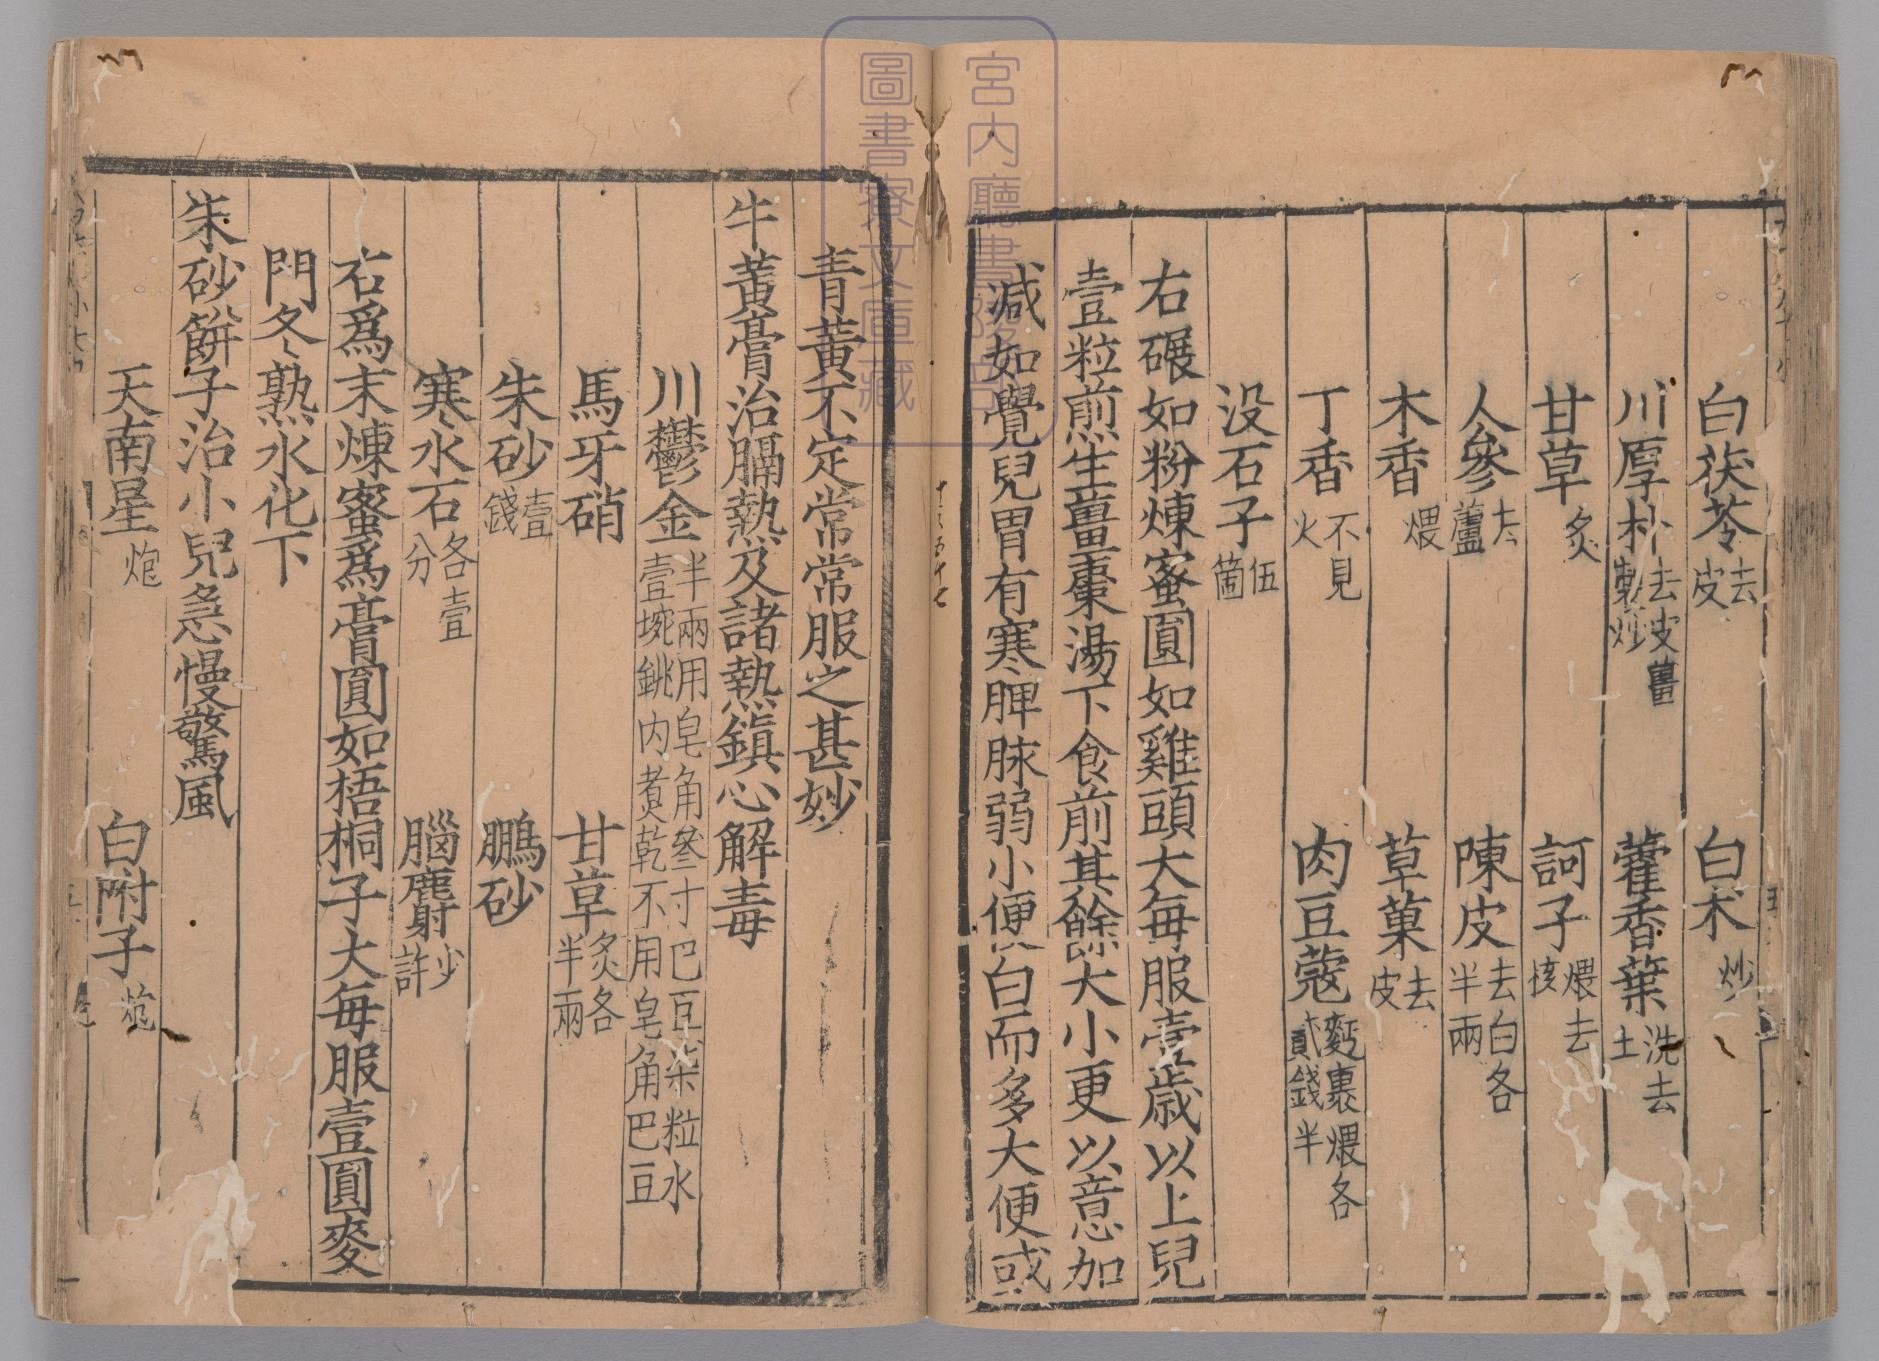 白茯苓去皮　白朮炒
川厚朴去皮薑製炒　藿香葉洗去土
甘草炙　訶子煨去核
人參去蘆　陳皮去白各半兩
木香煨　草菓去皮
丁香不見火　肉豆蔻麪裹煨各貳錢半
没石子伍箇
右碾如粉煉蜜圓如雞頭大每服壹歲以上兒
壹粒煎生薑棗湯下食前其餘大小更以意加
減如覺兒胃有寒脾脉弱小便白而多大便或
青黃不定常常服之甚妙
牛黃膏治膈熱及諸熱鎮心解毒
川鬱金半兩用皂角參寸巴豆柒粒水壹埦銚内煮乾不用皂角巴豆
馬牙硝　甘草炙各半兩
朱砂壹錢　鵬砂
寒水石各壹分　腦麝少許
右爲末煉蜜爲膏圓如梧桐子大每服壹圓麥
門冬熟水化下
朱砂餅子治小兒急慢驚風
天南星炮　白附子炮
宮内廳書陵部
圖書寮文庫藏